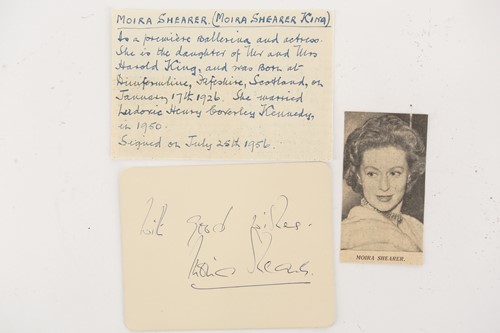 MOIRA SHEARER. (MOIRA SHEARER KING)
Is a premiere Ballerina and actress.
She is the daughter of Mr and Mrs
Harold King, and was Born at
Dunfermline, Fifeshire, Scotland, on
January 17th 1926. She married
Ludovic Henry Coverley Kennedy,
in 1950.
Signed on July 25th 1956.
With good wishes.
Moira Shearer.
MOIRA SHEARER.